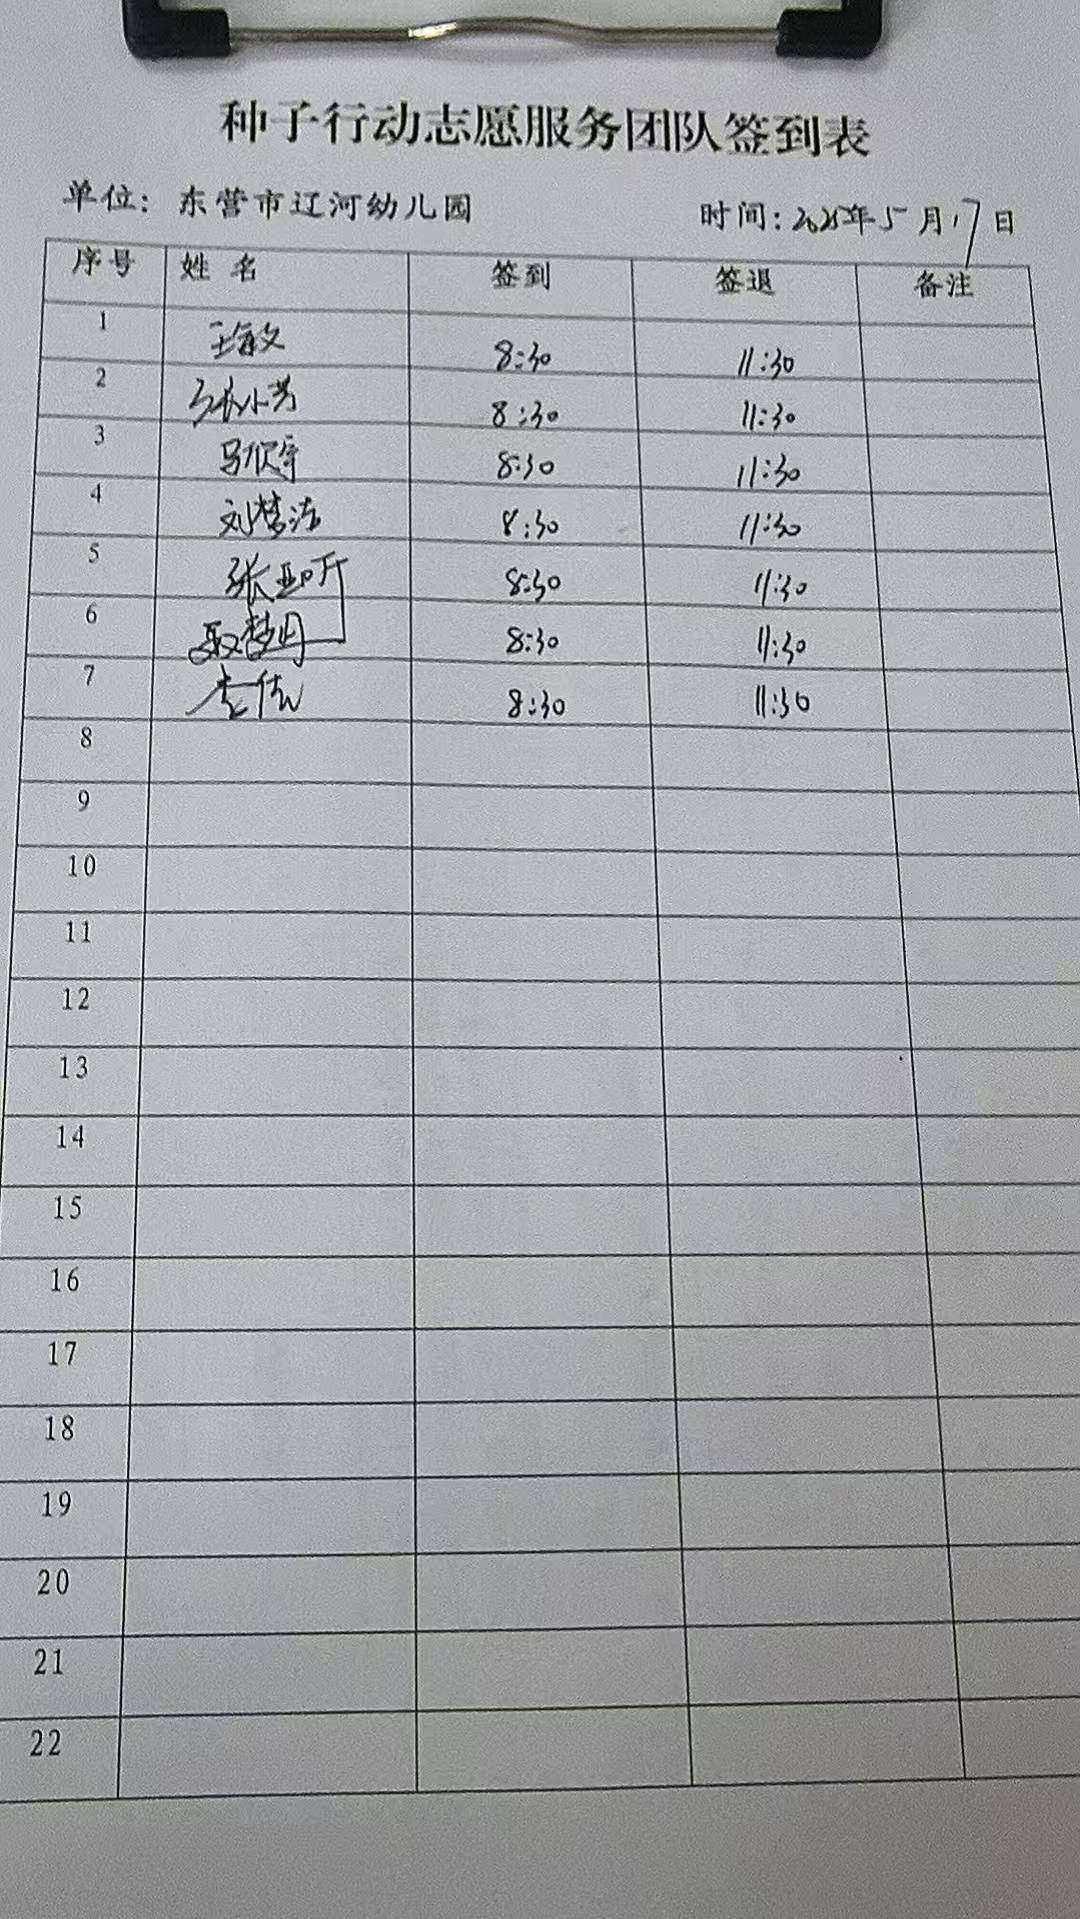 种子行动志愿服务团队签到表
单位: 东营市辽河幼儿园 时间: 2025年5月17日
序号 姓名 签到 签退 备注
1 王海文 8:30 11:30
2 张小芳 8:30 11:30
3 马欣宇 8:30 11:30
4 刘梦洁 8:30 11:30
5 张 8:30 11:30
6 聂梦丹 8:30 11:30
7 李倩 8:30 11:30
8
9
10
11
12
13
14
15
16
17
18
19
20
21
22